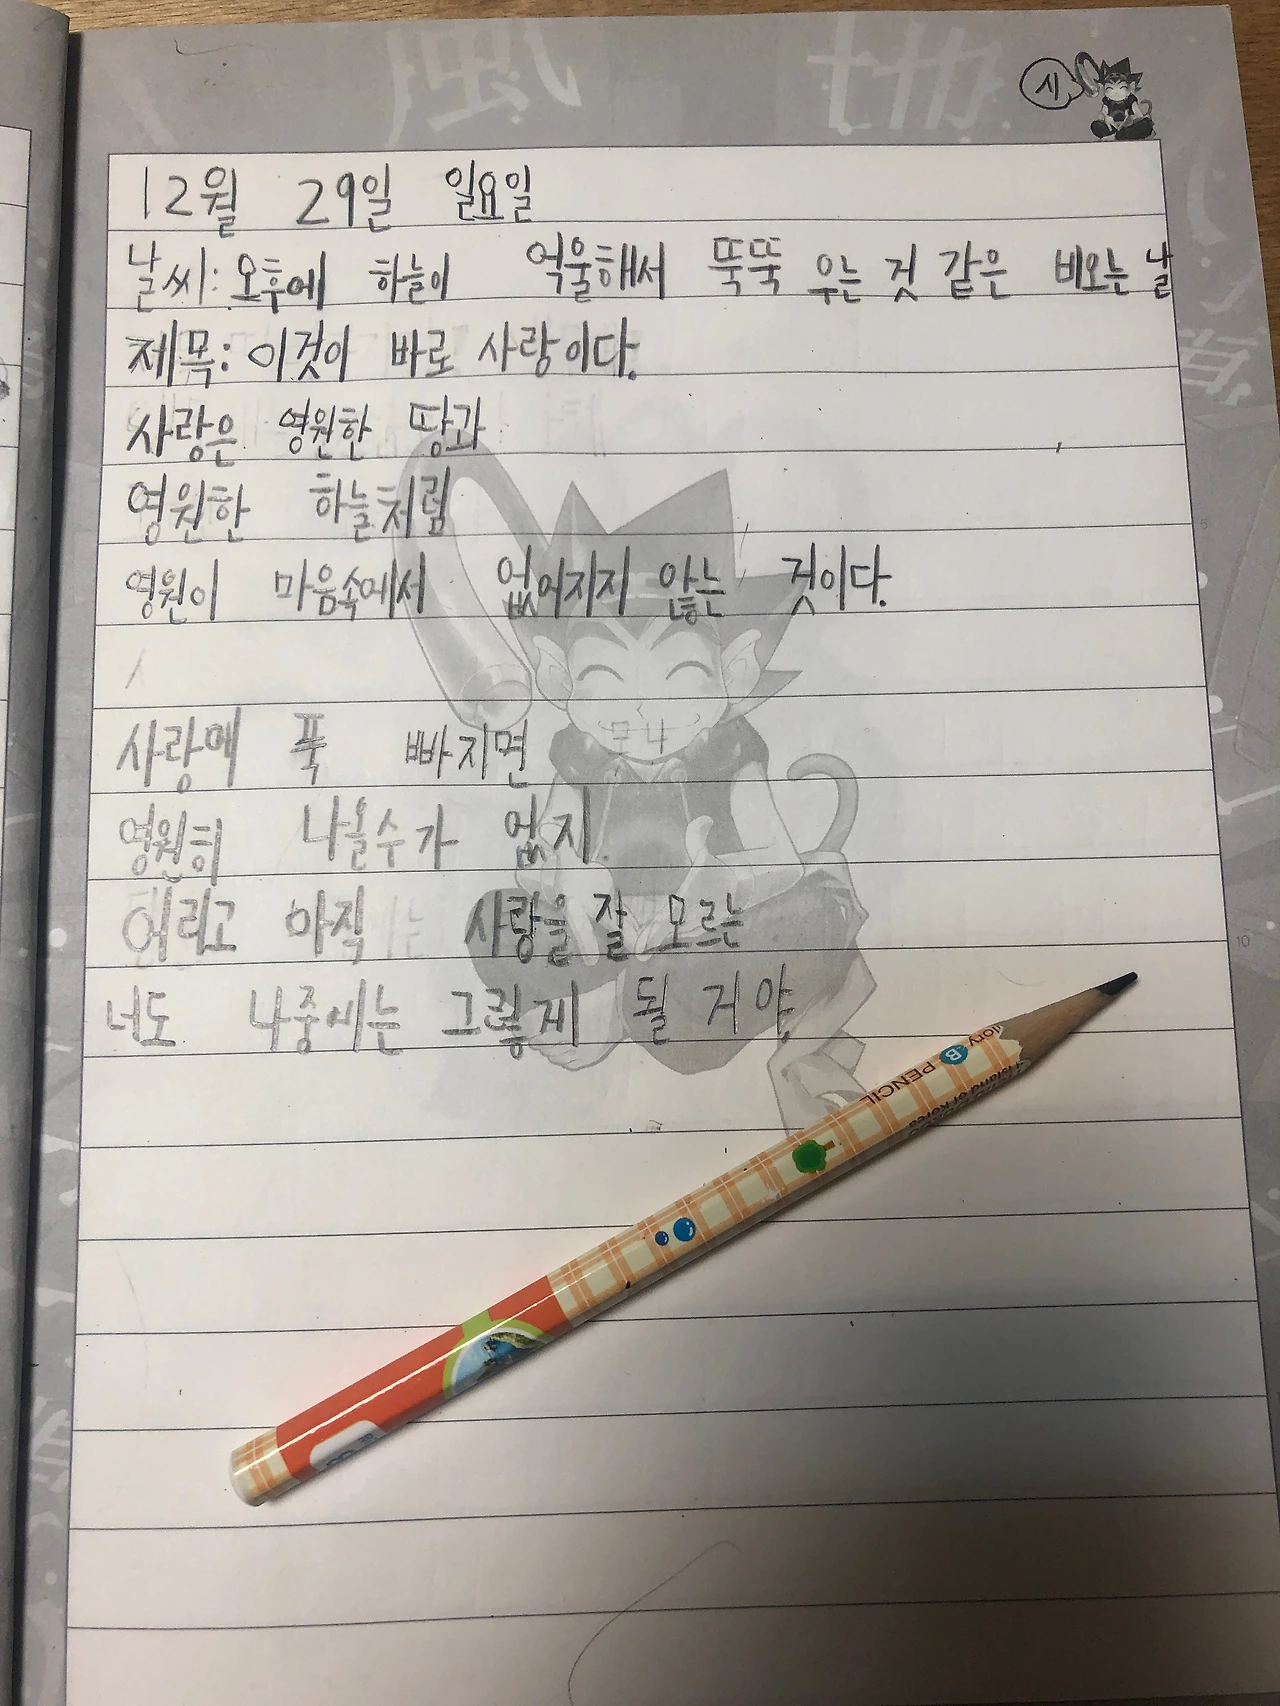 시
12월 29일 일요일
날씨: 오후에 하늘이 억울해서 뚝뚝 우는 것 같은 비오는 날
제목: 이것이 바로 사랑이다.
사랑은 영원한 땅과
영원한 하늘처럼
영원이 마음속에서 없어지지 않는 것이다.
사랑에 푹 빠지면
영원히 나올수가 없지.
어리고 아직 사랑을 잘 모르는
너도 나중에는 그렇게 될 거야.
10
B PENCIL